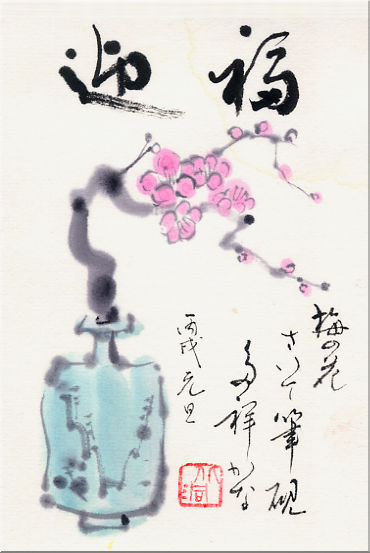 迎福
梅の花
さいて筆硯
多祥かな
丙戌元旦